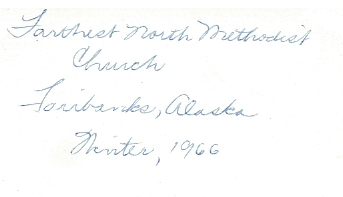 Farthest North Methodist
Church
Fairbanks, Alaska
Winter, 1966